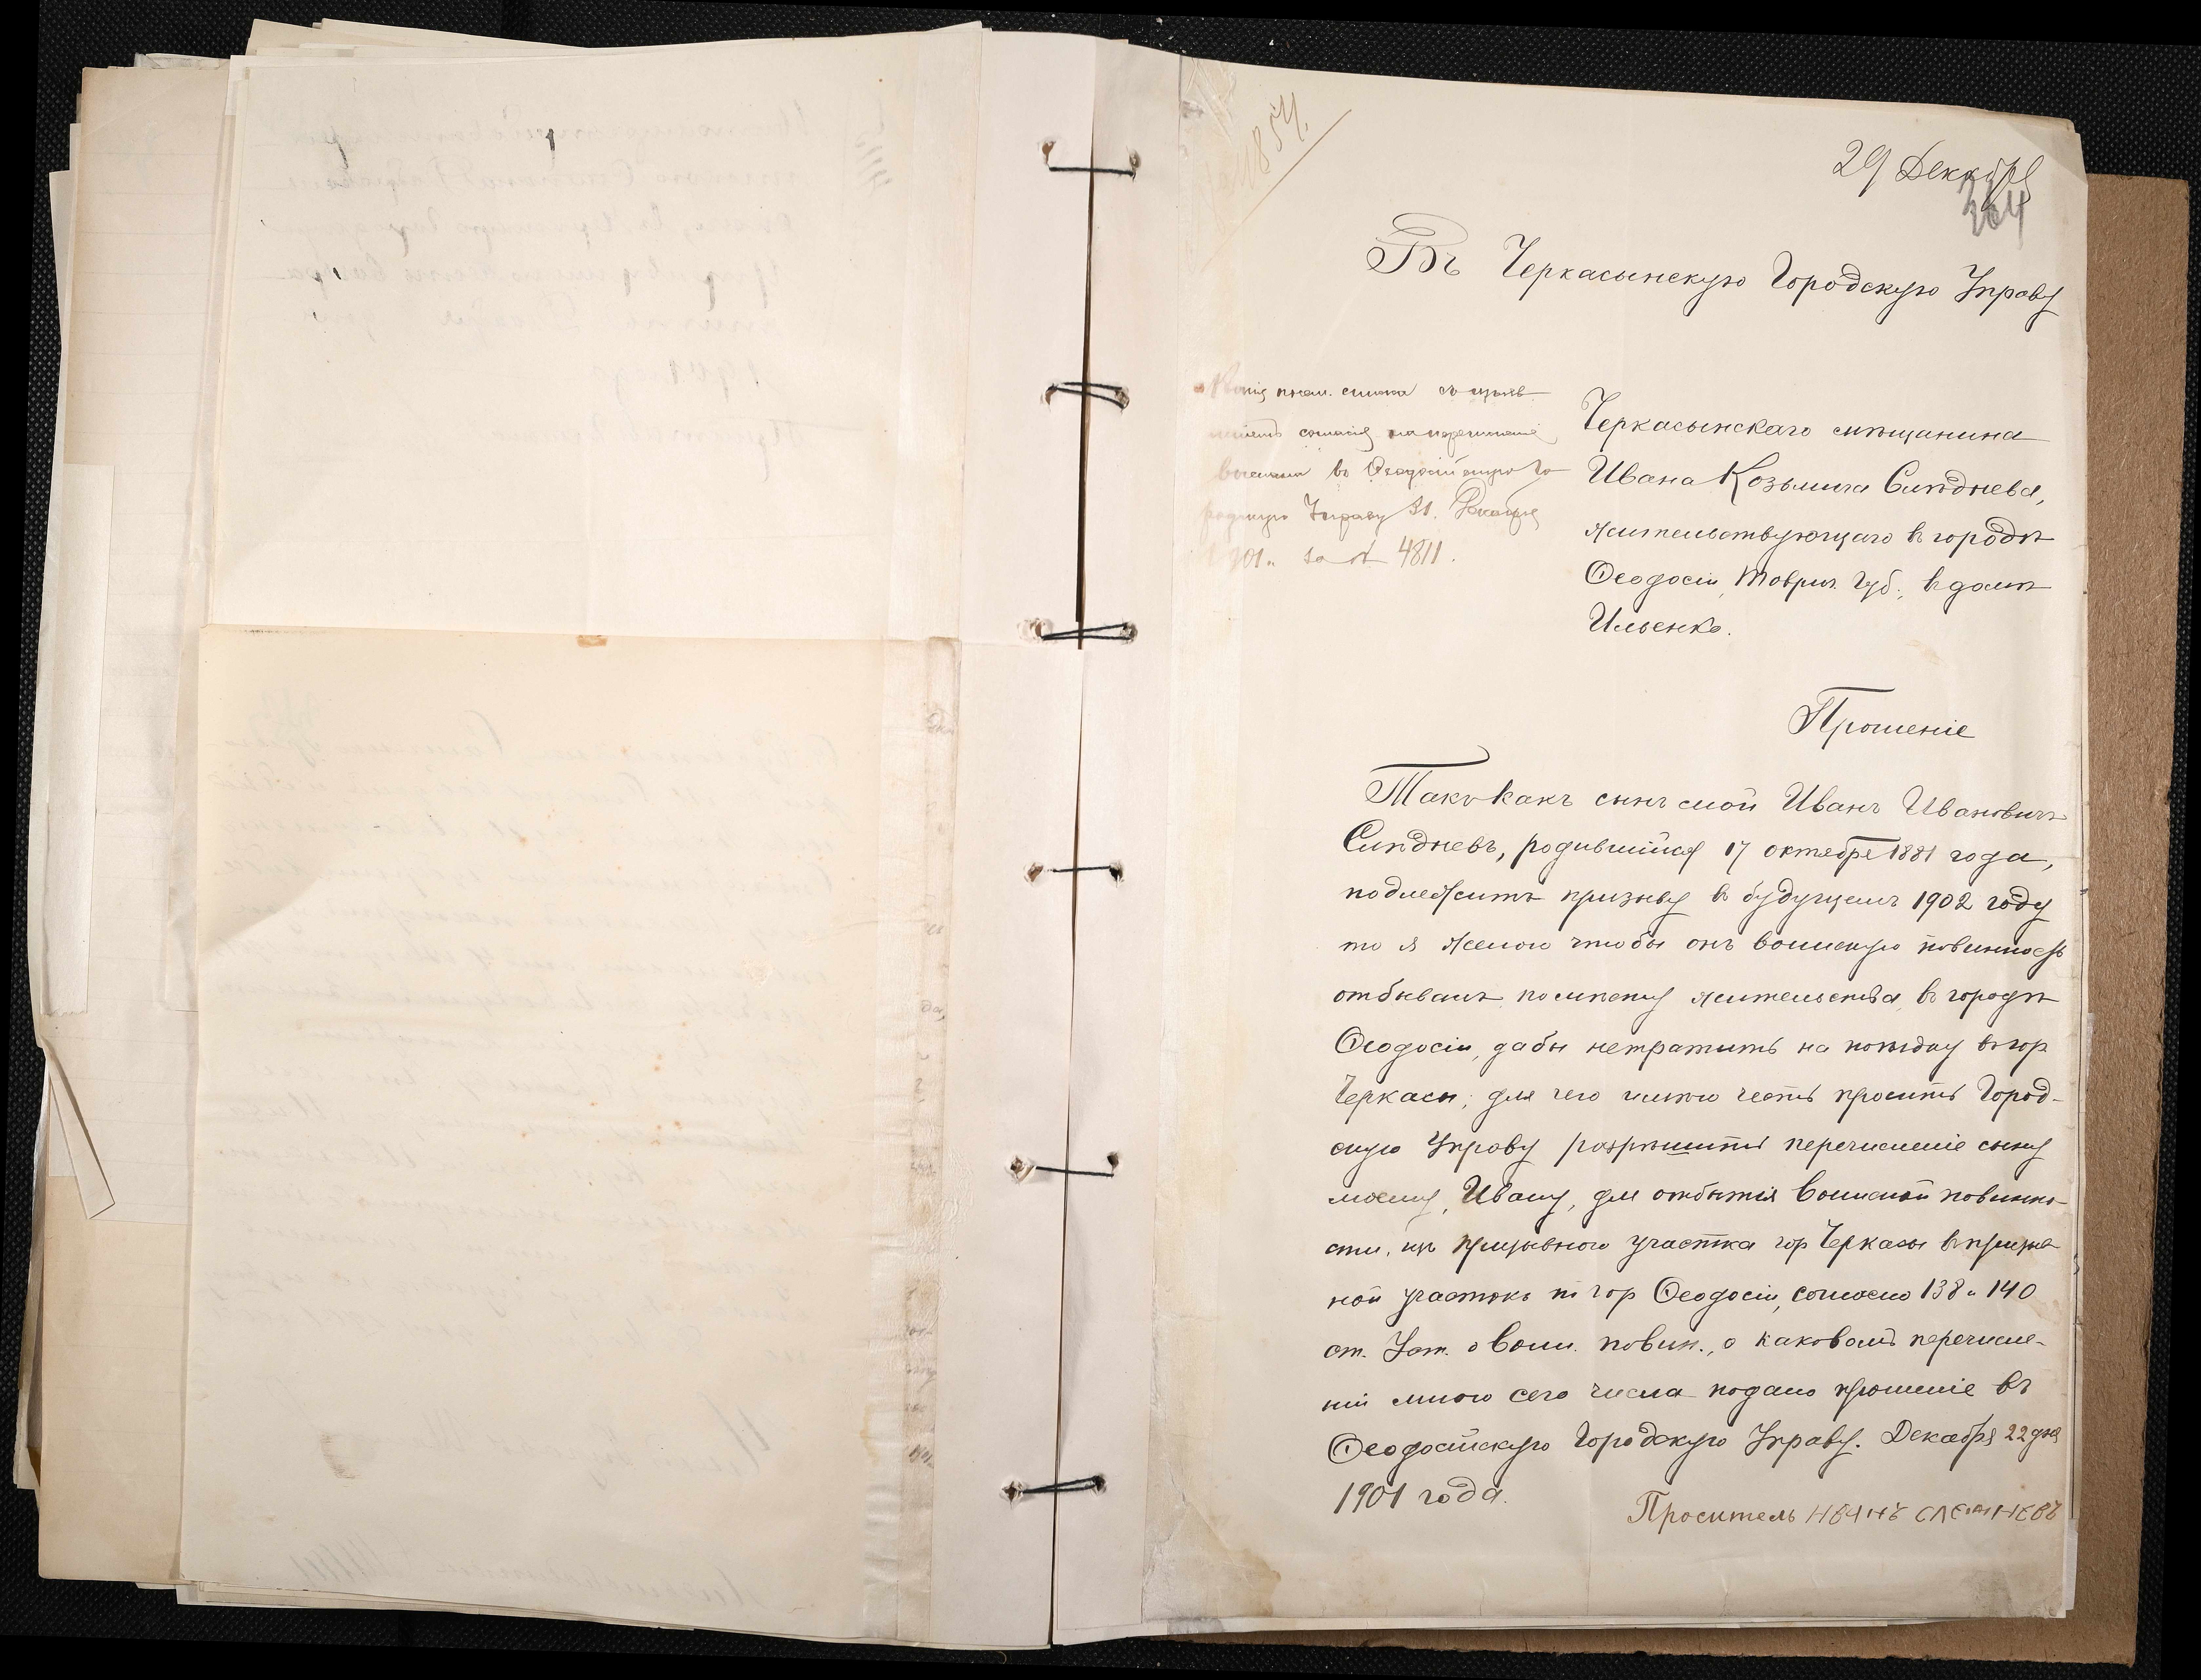 854.
29 Декабря
264
Въ Черкасынскую Городскую Управу
съ изъяв-
согласія на перечисленіе
выслана въ Ѳеодосійскую Го
родскую Управу 31. Декабря
901 г. за № 4811.
Черкасынскаго мѣщанина
Ивана Козьмича Слѣднева,
жительствующаго въ городѣ
Ѳеодосіи, Таврич. Губ., въ домѣ
Ильенко.
Прошеніе
Такъ какъ сынъ мой Иванъ Ивановичъ
Слѣдневъ, родившійся 17 октября 1881 года,
подлежитъ призыву въ будущемъ 1902 году
то я желаю чтобы онъ воинскую повинность
отбывалъ по мѣсту жительства, въ городѣ
Ѳеодосіи, дабы не тратить на поѣздку въ гор
Черкасы, для чего имѣю честь просить Город-
скую Управу разрѣшить перечисленіе сыну
моему, Ивану, для отбытія воинской повинно-
сти, изъ призывного участка гор Черкасы въ призыв
ной участокъ гор Ѳеодосіи, согласно 138 и 140
ст. Уст. о воин. повин., о каковомъ перечисле-
ніи мною сего числа подано прошеніе въ
Ѳеодосійскую Городскую Управу. Декабря 22 дня
1901 года.
Проситель Иванъ